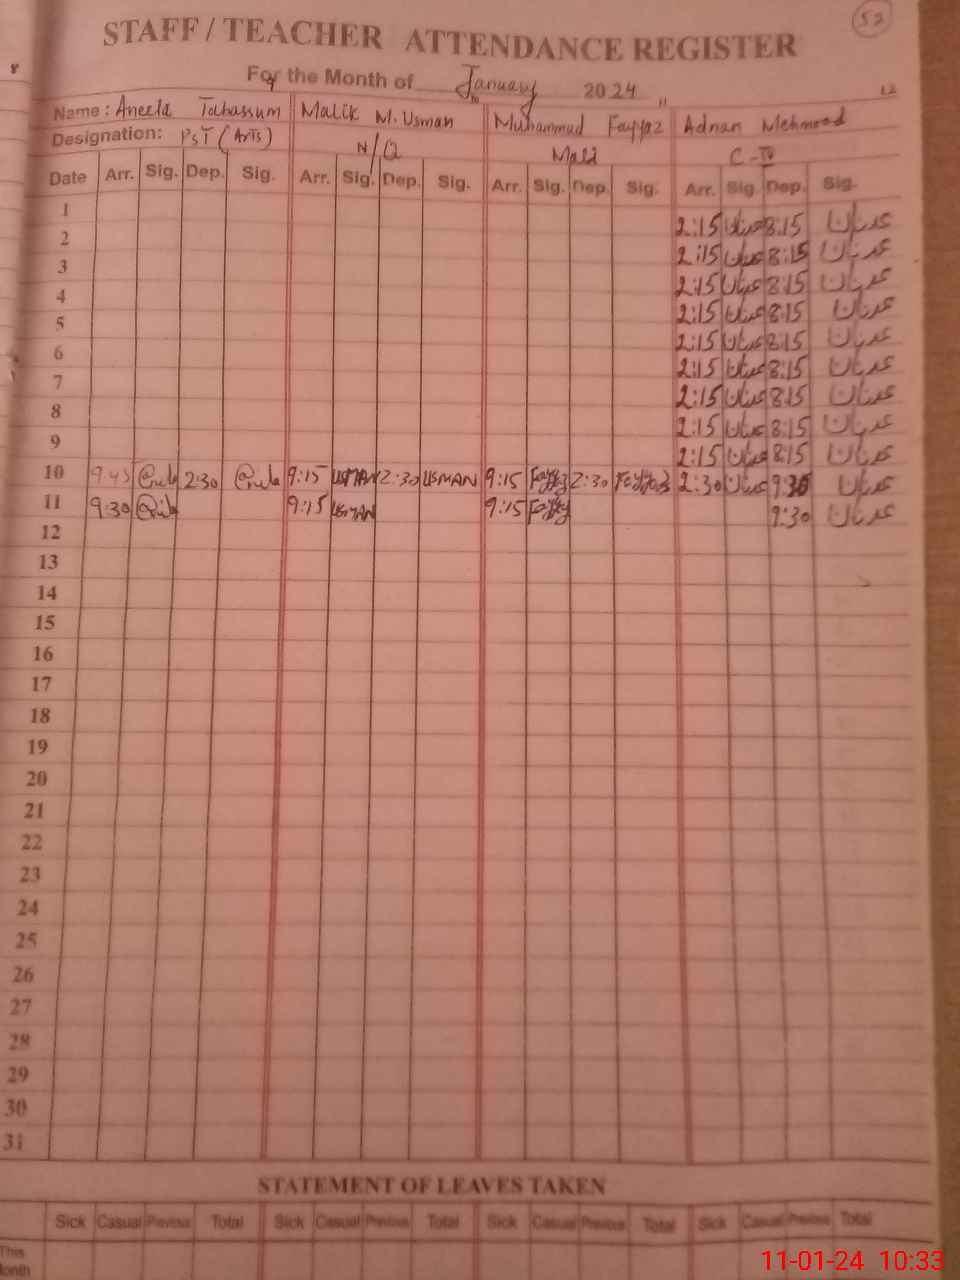 52
STAFF / TEACHER ATTENDANCE REGISTER
For the Month of January 2024
Name: Aneela Tabassum Malik M. Usman Muhammad Fayyaz Adnan Mehmood
Designation: PST (Arts) N/Q Mali C-IV
Date Arr. Sig. Dep. Sig. Arr. Sig. Dep. Sig. Arr. Sig. Dep. Sig. Arr. Sig. Dep. Sig.
1 2:15 عدنان 8:15 عدنان
2 2:15 عدنان 8:15 عدنان
3 2:15 عدنان 8:15 عدنان
4 2:15 عدنان 8:15 عدنان
5 2:15 عدنان 8:15 عدنان
6 2:15 عدنان 8:15 عدنان
7 2:15 عدنان 8:15 عدنان
8 2:15 عدنان 8:15 عدنان
9 2:15 عدنان 8:15 عدنان
10 9:45 2:30 9:15 USMAN 2:30 USMAN 9:15 Fayyaz 2:30 Fayyaz 2:30 عدنان 9:30 عدنان
11 9:30 9:15 USMAN 9:15 Fayyaz 9:30 عدنان
12
13
14
15
16
17
18
19
20
21
22
23
24
25
26
27
28
29
30
31
STATEMENT OF LEAVES TAKEN
Sick Casual Previous Total Sick Casual Previous Total Sick Casual Previous Total Sick Casual Previous Total
This
Month
11-01-24 10:33